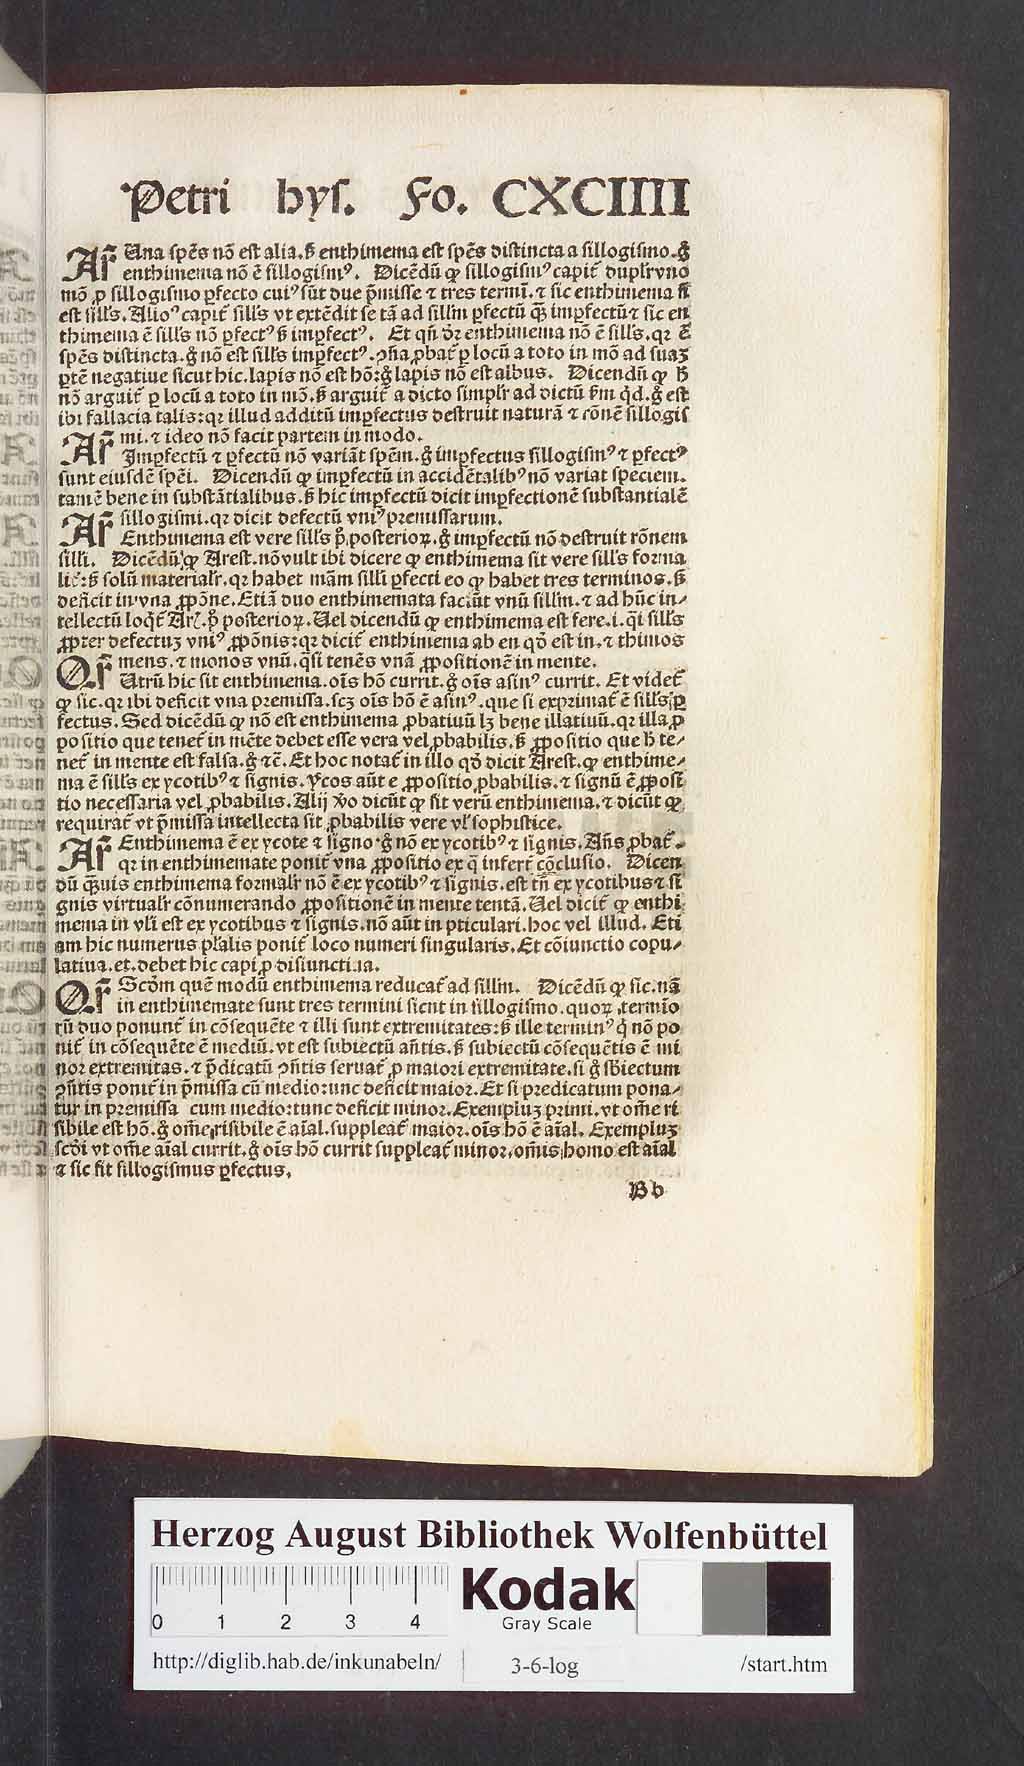 Petri hys. Fo. CXCIIII
Arr̃ Una spẽs nõ est alia. s̃ enthimema est spẽs distincta a sillogismo. g̊
enthimema nõ ẽ sillogismꝰ. Dicẽdũ ꝙ sillogismꝰ capit̃ duplr̃ vno
mõ ꝓ sillogismo ꝑfecto cuiꝰ sũt due p̃misse ⁊ tres termĩ. ⁊ sic enthimema nõ
est sills. Alioꝰ capit̃ sills vt extẽdit se tã ad sillm ꝑfectũ ꝙ̃ imꝑfectũ ⁊ sic en
thimema ẽ sills nõ ꝑfectꝰ s̃ imꝑfectꝰ. Et qñ dr̃ enthimema nõ ẽ sills. qr ẽ
spẽs distincta. g̊ nõ est sills imꝑfectꝰ. ↄña ꝓbat̃ ꝑ locũ a toto in mõ ad suaꝫ
ꝑtẽ negatiue sicut hic. lapis nõ est hõ: g̊ lapis nõ est albus. Dicendũ ꝙ h̃
nõ arguit̃ ꝑ locũ a toto in mõ. s̃ arguit̃ a dicto simplr̃ ad dictũ s̃m q̇d. g̊ est
ibi fallacia talis: qr illud additũ imꝑfectus destruit naturã ⁊ rõnẽ sillogis
Arr̃ mi. ⁊ ideo nõ facit partem in modo.
Imꝑfectũ ⁊ ꝑfectũ nõ variãt spẽm. g̊ imꝑfectus sillogismꝰ ⁊ ꝑfectꝰ
sunt eiusdẽ spẽi. Dicendũ ꝙ imꝑfectũ in accidẽtalibꝰ nõ variat speciem.
tamẽ bene in substãtialibus. s̃ hic imꝑfectũ dicit imꝑfectionẽ substantialẽ
Arr̃ sillogismi. qr dicit defectũ vniꝰ premissarum.
Enthimema est vere sills p̃. posterioꝝ. g̊ imꝑfectũ nõ destruit rõnem
silli. Dicẽdũ ꝙ Arest. nõ vult ibi dicere ꝙ enthimema sit vere sills forma
lic̃: s̃ solũ materialr̃. qr habet mãm silli ꝑfecti eo ꝙ habet tres terminos. s̃
deficit in vna ꝓpõne. Etiã duo enthimemata faciũt vnũ sillm. ⁊ ad hũc in⸗
tellectũ loq̃t̃ Ar. p̃ posterioꝝ. Uel dicendũ ꝙ enthimema est fere. i. q̃si sills
ꝓpter defectuꝫ vniꝰ ꝓpõnis: qr dicit̃ enthimema ab en qd̃ est in. ⁊ thimos
Qr̃ mens. ⁊ monos vnũ. q̃si tenẽs vnã ꝓpositionẽ in mente.
Utrũ hic sit enthimema. oĩs hõ currit. g̊ oĩs asinꝰ currit. Et videt̃
ꝙ sic. qr ibi deficit vna premissa. scꝫ oĩs hõ ẽ asinꝰ. que si exprimat̃ ẽ sills ꝑ
fectus. Sed dicẽdũ ꝙ nõ est enthimema ꝓbatiuũ lꝫ bene illatiuũ. qr illa ꝓ
positio que tenet̃ in mẽte debet esse vera vel ꝓbabilis. s̃ ꝓpositio que h̃ te⸗
net̃ in mente est falsa. g̊ ⁊c̃. Et hoc notat̃ in illo qd̃ dicit Arest. ꝙ enthime⸗
ma ẽ sills ex ycotibꝰ ⁊ signis. Ycos aũt e ꝓpositio ꝓbabilis. ⁊ signũ ẽ ꝓposi
tio necessaria vel ꝓbabilis. Alij v̊o dicũt ꝙ sit verũ enthimema. ⁊ dicũt ꝙ
requirat̃ vt p̃missa intellecta sit ꝓbabilis vere vl̃ sophistice.
Arr̃ Enthimema ẽ ex ycote ⁊ signo g̊ nõ ex ycotibꝰ ⁊ signis. Añs ꝓbat̃.
qr in enthimemate ponit̃ vna ꝓpositio ex q̃ infert̃ cõclusio. Dicen
dũ q̃̃uis enthimema formalr̃ nõ ẽ ex ycotibꝰ ⁊ signis. est tñ ex ycotibus ⁊ si
gnis virtualr̃ cõnumerando ꝓpositionẽ in mente tentã. Uel dicit̃ ꝙ enthi
mema in vli est ex ycotibus ⁊ signis. nõ aũt in ꝑticulari. hoc vel illud. Eti
am hic numerus pl̃alis ponit̃ loco numeri singularis. Et cõiunctio copu⸗
latiua. et. debet hic capi ꝓ disiunctiua.
Qr̃ Scd̃m quẽ modũ enthimema reducat̃ ad sillm. Dicẽdũ ꝙ sic. nã
in enthimemate sunt tres termini sicut in sillogismo. quoꝝ termĩo
rũ duo ponunt̃ in cõsequẽte ⁊ illi sunt extremitates: s̃ ille terminꝰ q̇ nõ po
nit̃ in cõsequẽte ẽ mediũ. vt est subiectũ añtis. s̃ subiectũ cõsequẽtis ẽ mi
nor extremitas. ⁊ p̃dicatũ ↄñtis seruat̃ ꝓ maiori extremitate. si g̊ sb̃iectum
ↄñtis ponit̃ in p̃missa cũ medio: tunc deficit maior. Et si predicatum pona⸗
tur in premissa cum medio: tunc deficit minor. Exempluꝫ primi. vt om̃e ri
sibile est hõ. g̊ om̃e risibile ẽ aĩal. suppleat̃ maior. oĩs hõ ẽ aĩal. Exempluꝫ
scd̃i vt om̃e aĩal currit. g̊ oĩs hõ currit suppleat̃ minor. om̃is homo est aĩal
⁊ sic fit sillogismus ꝑfectus.
Bb
Herzog August Bibliothek Wolfenbüttel
0 1 2 3 4
Kodak
Gray Scale
http://diglib.hab.de/inkunabeln/ 3-6-log /start.htm